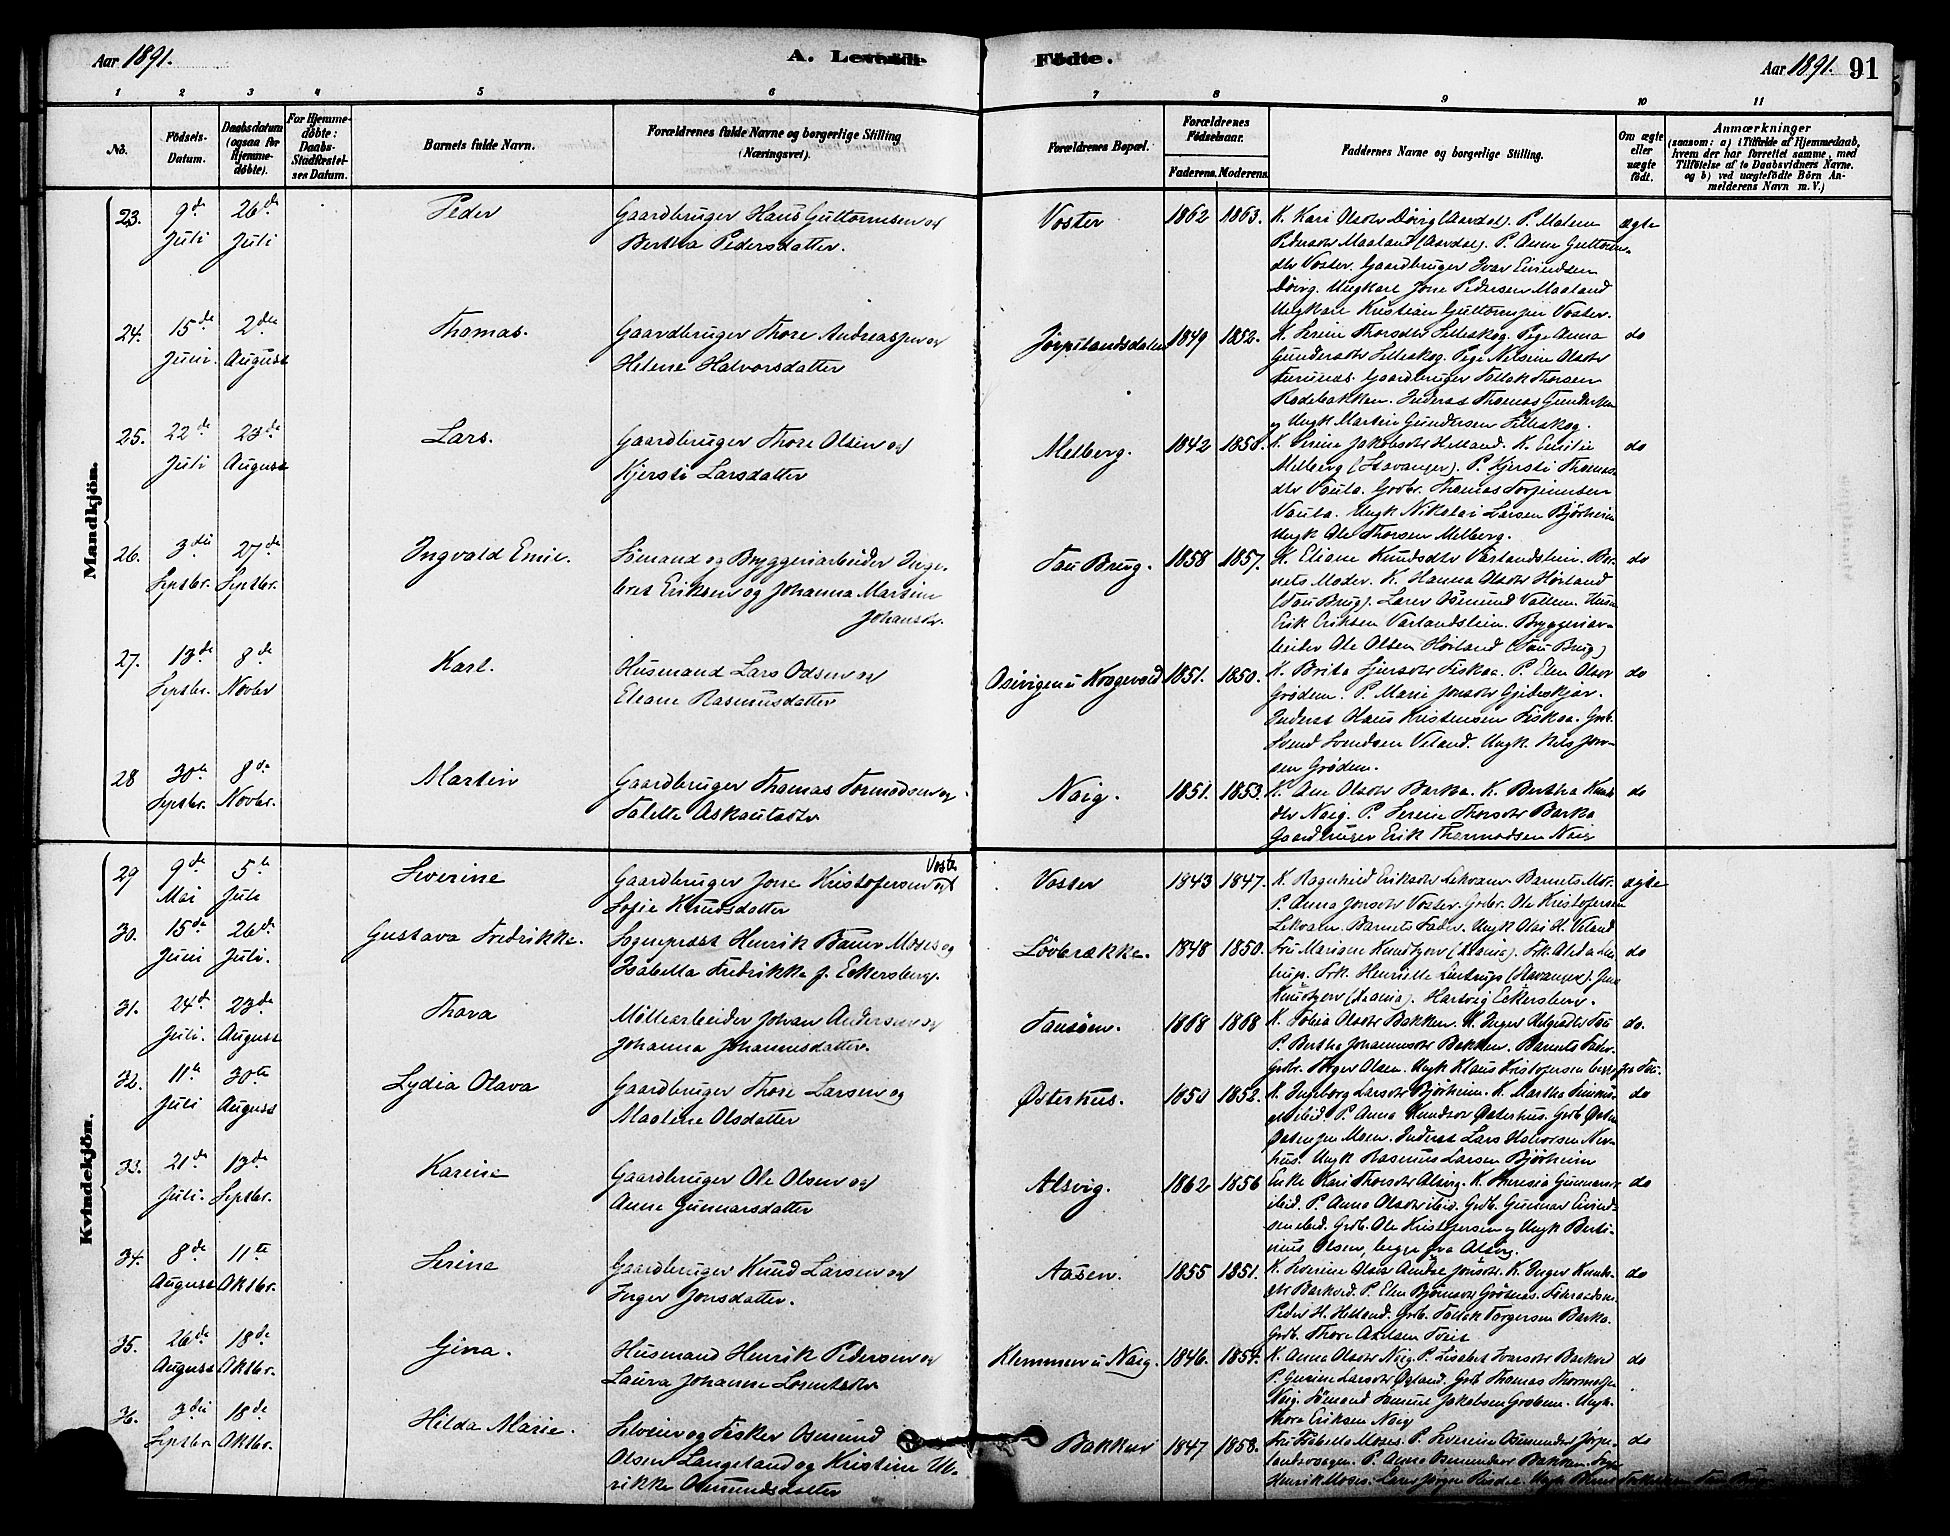 Aar 1891.
A. Levende Fødte.
Aar 1891. 91
1 2 3 4 5 6 7 8 9 10 11
No.
Fødsels-Datum.
Daabsdatum (ogsaa for Hjemme-døbte).
For Hjemme-døbte: Daabs-Stadfæstel-ses Datum.
Barnets fulde Navn.
Forældrenes fulde Navne og borgerlige Stilling (Næringsvei).
Forældrenes Bopæl.
Forældrenes Fødselsaar.
Faderens. Moderens.
Faddernes Navne og borgerlige Stilling.
Om ægte eller uægte født.
Anmærkninger
(saasom: a) i Tilfælde af Hjemmedaab,
hvem der har forrettet samme, med
Tilføielse af to Daabsvidners Navne.
og b) ved uægtefødte Börn An-
melderens Navn m. V.)
Mandkjön.
23. 9de Juli 26de Juli Peder
Gaardbruger Hans Guttormsen og
Bertha Pedersdatter.
Voster 1862 1863.
K. Kari Olsdtr Døirg (Aardal). P. Malene
Pedersdtr Maaland (Aardal). P. Anne Guttorms-
dtr Voster. Gaardbruger Ivar Eivindsen
Døirg. Ungkarl Jone Pedersen Maaland
Ungkarl Kristian Guttormsen Voster.
ægte
24. 15de Juni. 2den August Thomas.
Gaardbruger Thore Andreassen og
Helene Halvorsdatter
Jørpelandsdalen 1849 1852.
K. Serine Thorsdtr Selleskog. Pige Anna
Gundersdtr Selleskog. Pige Nilsine Olsdtr
Gaardbruger Tollak Thorsen
Rødebakken. Inderst Thomas Gundersen
og Ungk Martin Gundersen Selleskog.
do
25. 22de Juli 23de August Lars.
Gaardbruger Thore Olsen og
Kjersti Larsdatter
Melberg. 1842 1850.
K. Serine Jakobsdtr Helland. K. Emilie
Melberg (Stavanger). P. Kjersti Thomas-
dtr Vauta. Grdbr. Thomas Torjeursen
Vauta. Ungk Nikolai Larsen Bjørheim
Ungk Ole Thorsen Melberg.
do
26. 3die Septbr. 27de Septbr. Ingvald Emil.
Sømand og Bryggeriarbeider Inge-
bret Eriksen og Johanna Martine
Johansdtr.
Tau Brug. 1858 1857.
K. Eliane Knudsdtr Varlandsleim. Bar-
nets Moder. K. Hanna Olsdtr Hørland
(Tau Brug). Lærer Osmund Vallem. Husm
Erik Eriksen Varlandsleim. Bryggeriar-
beider Ole Olsen Hørland (Tau Brug)
do
27. 13de Septbr. 8de Novbr Karl.
Husmand Lars Odsen og
Eliane Rasmusdatter
Osivigen u Krogevold 1851. 1850.
K. Brita Fiskaa. P. Elen Olsdtr
Grødem. P. Marie Jonsdtr Gjideskjær.
Inderst Olaus Kristensen Fiskaa. Grdb.
Svend Svendsen Veland. Ungk. Nils Jon-
sen Grødem.
do
28 30te Septbr. 8de Novbr. Martin
Gaardbruger Thomas Tormodsen og
Talette Askautsdtr
Naig. 1851. 1853.
K. Ane Olsdtr Barka. K. Bertha Knuds-
dtr Naig. P. Serine Thorsdtr Barka
Gaardbruger Erik Thormodsen Naig
do
Kvindekjön.
29 9de Mai 5te Juli Severine
Gaardbruger Jone Kristofersen Voster og
Sofie Knudsdatter
Voster 1843 1847.
K. Ragnhild Eriksdtr Lekvam. Barnets Mor.
P. Anna Jonsdtr Voster. Grdbr. Ole Kristofersen
Lekvam. Barnets Fader. Ungk Olai H. Veland
ægte
30. 15de Juni 26de Juli. Gustava Fredrikke.
Sogneprest Henrik Bauer Moses og
Isabella Fredrikke f. Eckersberg.
Løvbrække. 1848 1850.
Fru Mariane Knudtzon (Xania). Frk Alida Lin-
trup. Frk. Henriette Lintrup (Stavanger).
(Xania). Hartvig Eckersberg.
do
31. 24de Juli. 23de August Thora
Møllearbeider Johan Andersen og
Johanna Johannesdatter.
Tausøen. 1868 1868
K. Tobia Olsdtr Bakken. K. Inger Tau
P. Bertha Johannesdtr Bakken. Barnets Fader.
Grdbr. Torger Olsen. Ungk Klaus Kristofersen begge fra Tau.
do.
32. 11te Juli 30te August Lydia Olava
Gaardbruger Thore Larsen og
Maalene Olsdatter
Østerhus. 1850 1852.
K. Ingeborg Larsdtr Bjørheim. K. Martha
ibid. P. Anna Knudsdtr Østerhus. Grdb Østen
Østensen Moen. Inderst Lars Halvorsen Nør-
hus. Ungk Rasmus Larsen Bjørheim
do
33. 21de Juli. 13de Septbr. Karine
Gaardbruger Ole Olsen og
Anne Gunnarsdatter
Alsvig. 1862 1856
Enke Kari Thorsdtr Alsvig. K. Theresia Gunnarsdtr
ibid. P. Anna Olsdtr ibid. Grdb. Gunnar Eivind-
sen ibid. Grdb. Ole Kristofersen og Ungk Berti-
nius Olsen, begge fra Alsvig.
do
34. 8de August 11te Oktbr. Serine
Gaardbruger Knud Larsen og
Inger Jonsdatter.
Aasen. 1855 1851.
K. Severine Olsdtr Amdal K. Inger Knuds-
dtr Barkved. P. Elen Bjørnsdtr Grøtnes.
Peder H. Helland. Grdb. Tollak Torgersen Barka.
Grdb. Thore Tveit
do
35. 26de August 18de Oktbr. Gina.
Husmand Henrik Pedersen og
Laura Johanne Lorentsdtr
Klemmen u Naig. 1846. 1854.
K. Anna Olsdtr Naig. P. Lisabet Ivarsdtr Barkved
P. Gurine Larsdtr Øglænd. Grdb Thomas Thormodsen
Naig. Sømand Samuel Jakobsen Grødem. Ungk.
Thore Eriksen Naig
do
36. 3die Septbr 18de Oktbr. Hilda Marie.
Selveier og Fisker Osmund
Olsen Langeland og Kristine Ul-
rikke Osmundsdatter
Bakken 1847 1858.
Fru Isabella Moses. P. Severine Osmundsdtr Jørpe-
landsvaagen. P. Anna Osmundsdtr Bakken.
Henrik Moses. Lars Jørgen Ungk Tau Brug
do